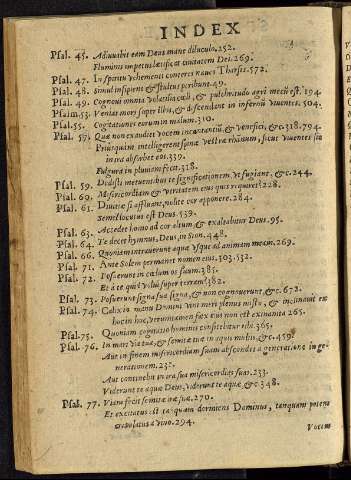 INDEX
Psal. 45. Adiuuabit eam Deus mane diluculo. 252.
Fluminis impetus lætificat ciuitatem Dei. 269.
Psal. 47. In spiritu vehementi conteres naues Tharsis. 572.
Psal. 48. Simul insipiens & stultus peribunt. 49.
Psal. 49. Cognoui omnia volatilia cæli, & pulchritudo agri mecū est. 194.
Psalm. 53. Veniat mors super illos, & descendant in infernū viuentes. 504.
Psal. 55. Cogitationes eorum in malum. 310.
Psal. 57. Quæ non exaudiet vocem incantantiū, & venefici, &c. 318. 794.
Priusquam intelligerent spinæ vestræ rhamnum, sicut viuentes sic
in ira absorbet eos. 339.
Fulgura in pluuiam fecit. 318.
Psal. 59. Dedisti metuentibus te significationem vt fugiant, &c. 244.
Psal. 60. Misericordiam & veritatem eius quis requiret? 228.
Psal. 61. Diuitiæ si affluant, nolite cor apponere. 284.
Semel locutus est Deus. 539.
Psal. 63. Accedet homo ad cor altum & exaltabitur Deus. 95.
Psal. 64. Te decet hymnus, Deus, in Sion. 448.
Psal. 66. Quoniam intrauerunt aquæ vsque ad animam meam. 269.
Psal. 71. Ante Solem permanet nomen eius. 303. 532.
Psal. 72. Posuerunt in cælum os suum. 385.
Et à te quid volui super terram? 382.
Psal. 73. Posuerunt signa sua signa, & non cognouerunt, &c. 672.
Psal. 74. Calix in manu Domini vini meri plenus mixto, & inclinauit ex
hoc in hoc, verumtamen fæx eius non est exinanita. 265.
Psal. 75. Quoniam cogitatio hominis confitebitur tibi. 365.
Psal. 76. In mari via tua, & semitæ tuæ in aquis multis, &c. 459.
Aut in finem misericordiam suam abscondet à generatione in ge-
nerationem. 232.
Aut continebit in ira sua misericordias suas. 233.
Viderunt te aquæ Deus, viderunt te aquæ, &c. 348.
Psal. 77. Viam fecit semitæ iræ suæ. 270.
Et excitatus est tanquam dormiens Dominus, tanquam potens
crapulatus à vino. 294.
Vocem